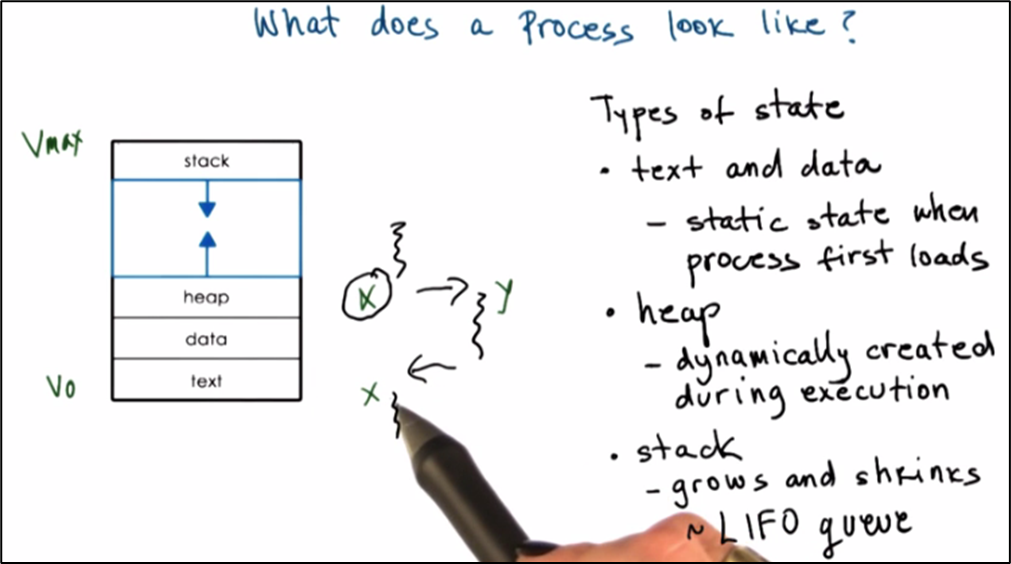 What does a Process look like?
Vmax
stack
heap
data
text
V0
X
y
x
Types of state
• text and data
- static state when
process first loads
• heap
- dynamically created
during execution
• stack
- grows and shrinks
~ LIFO queue